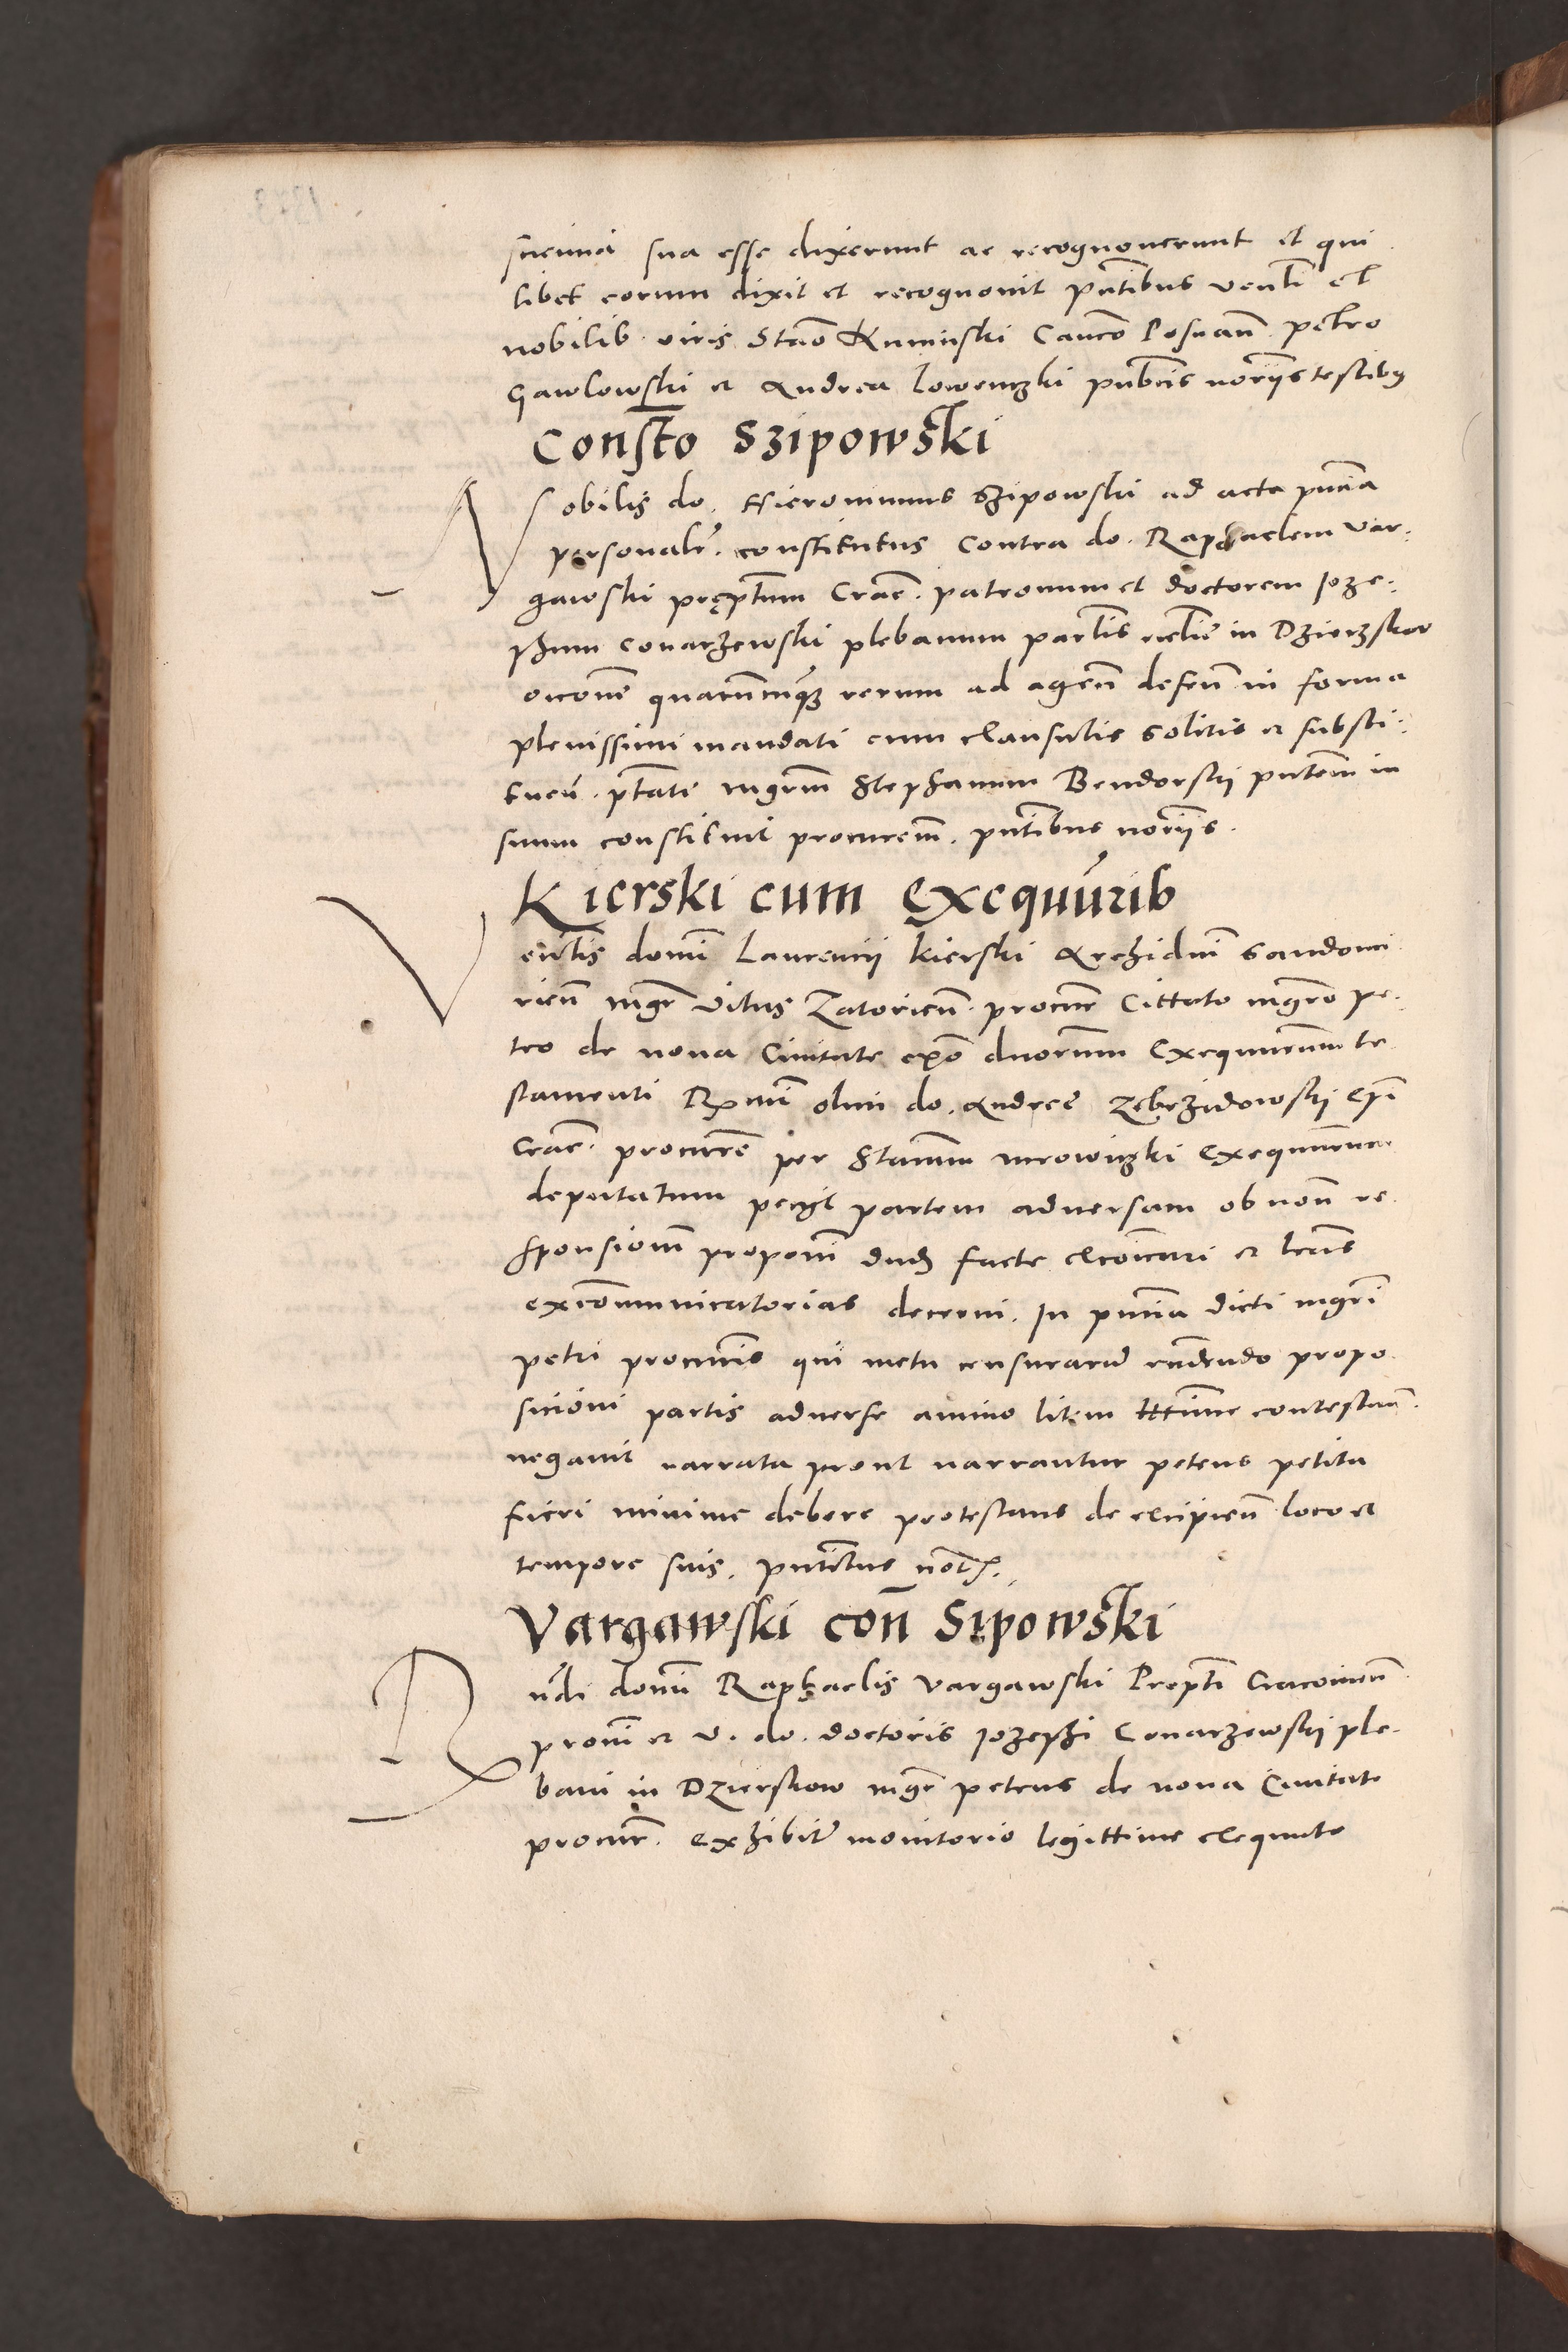 sua esse dixerunt ac recognoverunt et qui
libet eorum dixit et recognovit pntibus venli et
nobilib viris Stao Kuminski Canco Posnan petro
Gawlowski et Andrea Lowenczki publicis noriis testibus
Consto Szipowski
Nobilis do. Hieronimus Szipowski ad acta pntia
personalr. constitutus contra do. Raphaelem Var:
gawski pręptum Crac. patronum et doctorem Joze:
phum Conarzewski plebanum partis in Dzierzskow
quarumcunq rerum ad agen defen in forma
plenissimi mandati cum clausulis solitis et substi:
tuen. ptati mgrm Stephanum Bendorski pntem in
suum constituit procurem. pntibus noriis.
Kierski cum Exequurib
Venlis domi Laurencii Kierski Archidni Sandomi
rien mgr Vitus Zatorien. procur Cittato mgro pe:
tro de nova Civitate duorum Exequutorum te
stamenti Rxmi olim do. Andree Zebrzidowski Epi
Crac. procure per Stanum mrowinzki Exequutorem
deputatum petyt partem adversam ob non re
sponsionem proponi dudum facte excoicari et lras
excommunicatorias decerni. In pntia dicti mgri
petri procuris qui metu censurarum rndendo propo
sicioni partis adverse animo litem minime contestan.
negavit narrata prout narrantur petens petita
fieri minime debere protestans de excipien loco et
tempore suis. pntibus not.
Vargawski con Sipowski
Rndi domi Raphaelis Vargawski Prepti Cracovien
proni et v. do. doctoris Jozephi Conarzewski ple-
bani in Dzierskow mgr petrus de nova Civitate
procur. exhibito monitorio legittime exequuto